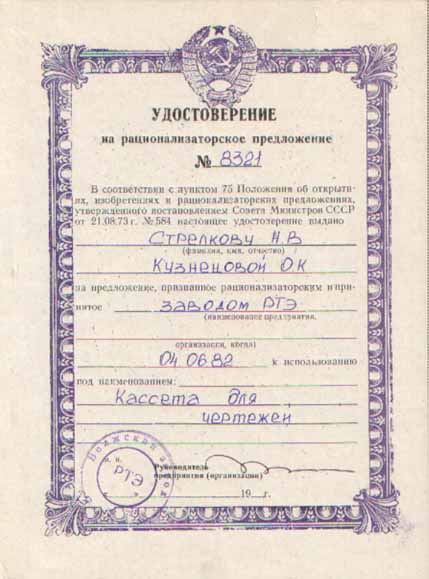 УДОСТОВЕРЕНИЕ
на рационализаторское предложение
№ 8321
В соответствии с пунктом 75 Положения об открыти-
ях, изобретениях и рационализаторских предложениях,
утвержденного постановлением Совета Министров СССР
от 21.08.73 г. №584 настоящее удостоверение выдано
Стрелкову Н.В
(фамилия, имя, отчество)
Кузнецовой О.К
на предложение, признанное рационализаторским и при-
нятое заводом РТЭ
(наименование предприятия,
организации, когда)
04 06.82 к использованию
под наименованием:
Кассета для
чертежей
Волжский завод
РТЭ
Руководитель
предприятия (организации)
19 г.